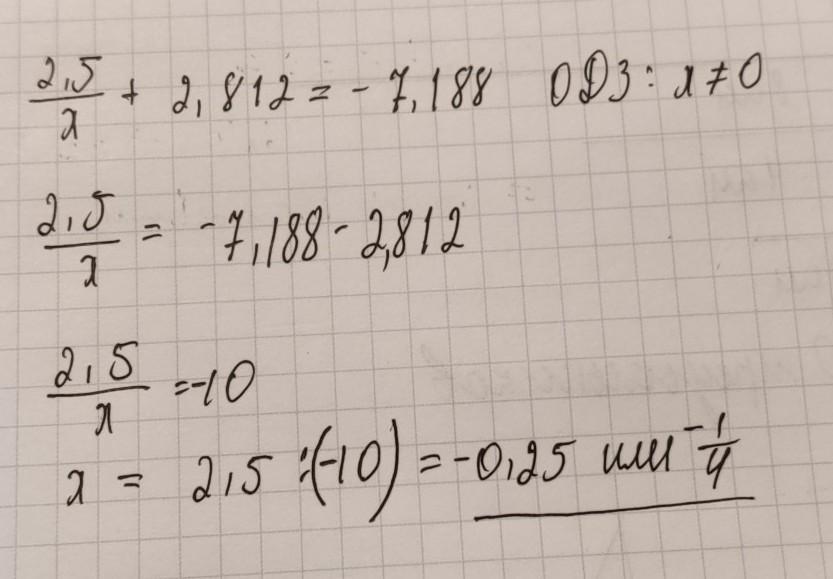 2,5/x + 2,812 = - 7,188 ОДЗ: x ≠ 0
2,5/x = -7,188 - 2,812
2,5/x = -10
x = 2,5 :(-10) = -0,25 или -1/4